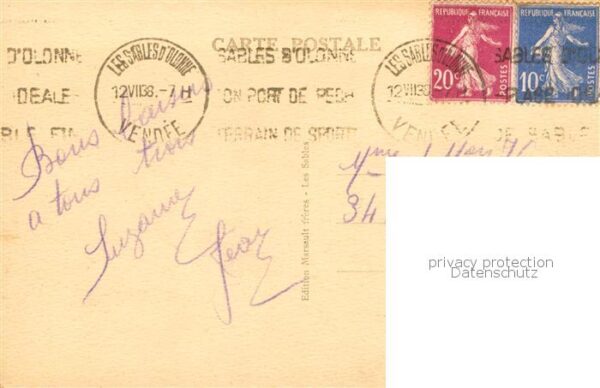 CARTE POSTALE
REPUBLIQUE FRANÇAISE
20c
POSTES
REPUBLIQUE FRANÇAISE
10c
POSTES
D'OLONNE
IDEALE
LES SABLES D'OLONNE
12 VII 36 - 7 H
VENDÉE
SABLES D'OLONNE
SON PORT DE PECHE
TERRAIN DE SPORT
LES SABLES D'OLONNE
12 VII 36
VENDÉE
SABLES D'OL
PLAGE
DE SABLE
Bons baisers
a tous trois
Suzanne
Jean
Edition Marsault frères - Les Sables
Mme
34
privacy protection
Datenschutz